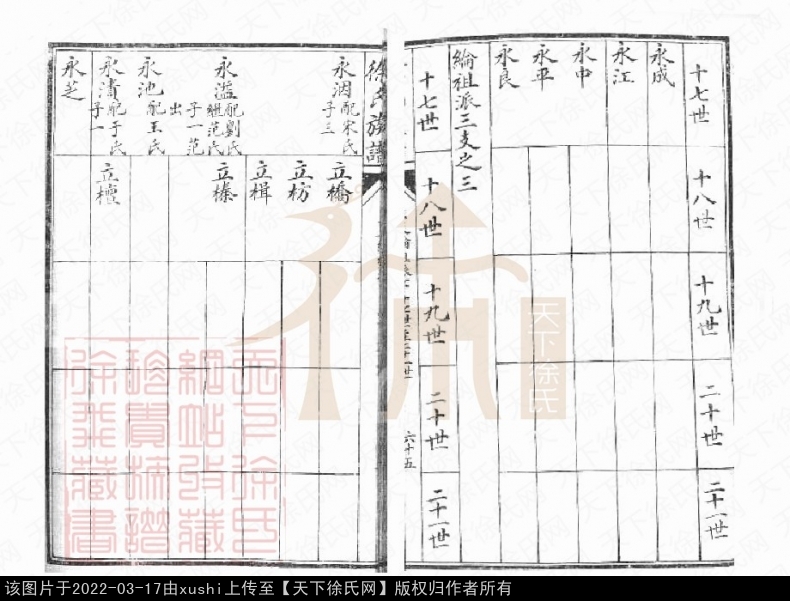 十七世
十八世
十九世
二十世
二十一世
永成
永江
永中
永平
永良
綸祖派三支之三
十七世
十八世
十九世
二十世
二十一世
六十五
徐氏族譜
永洇
配宋氏
子三
立橋
立枋
立楫
永滥
配劉氏
繼范氏
子一范
出
立榛
永池
配王氏
永清
配于氏
子一
立檀
永芝
天下徐氏
天下徐氏
網站收藏
珍貴族譜
徐飛藏書
该图片于2022-03-17由xushi上传至【天下徐氏网】版权归作者所有